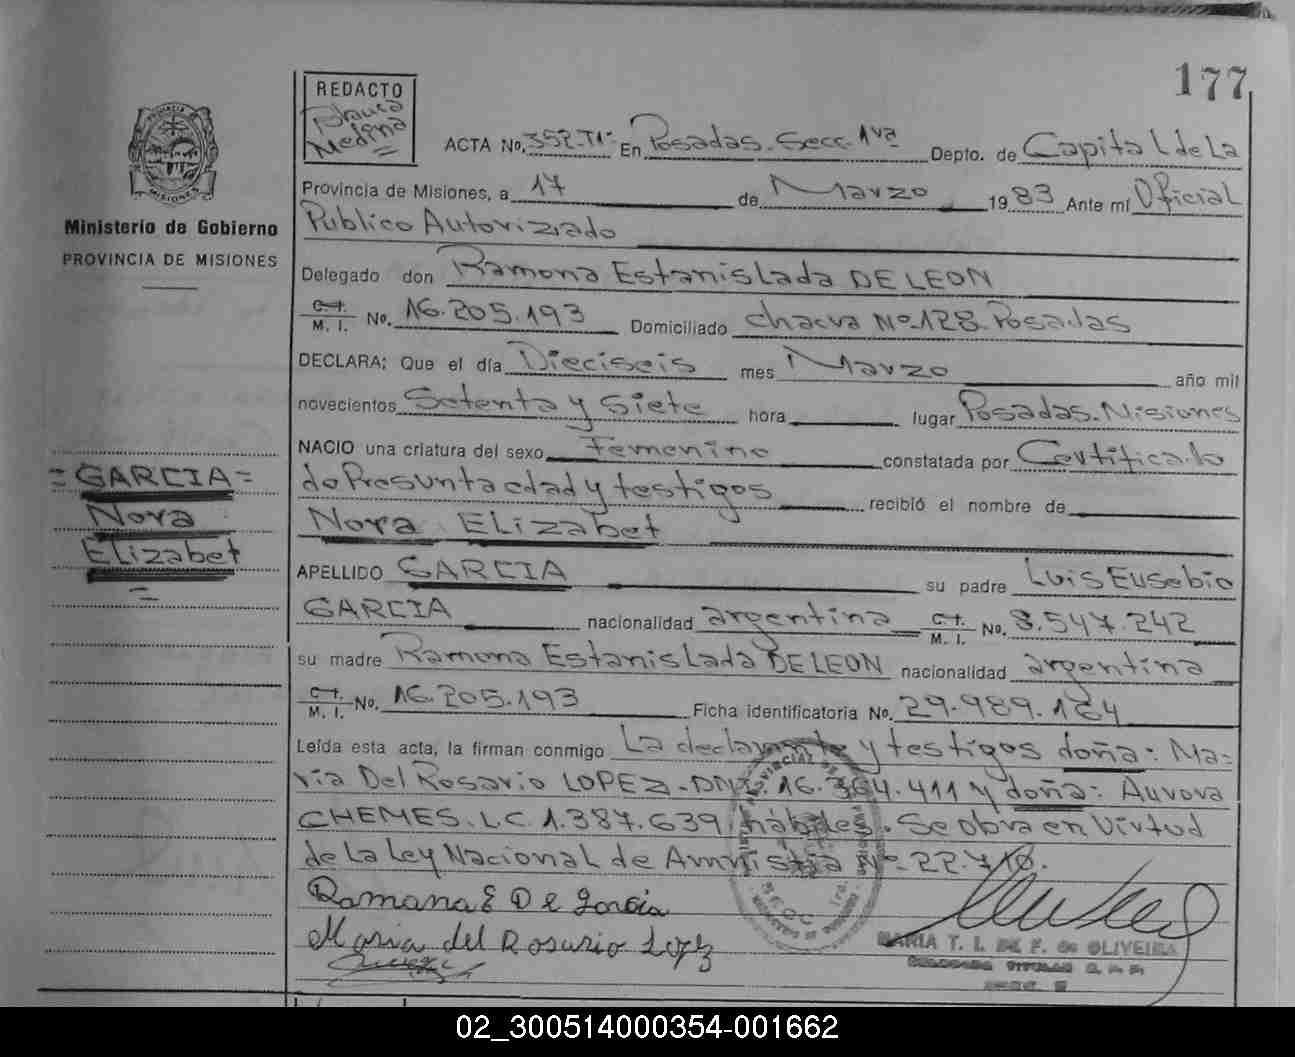 177
REDACTO
Blanca
Medina
ACTA No. 352-T1- En Posadas. Secc. 1va Depto. de Capital de La
Provincia de Misiones, a 17 de Marzo 1983 Ante mí Oficial
Publico Autorizado
Ministerio de Gobierno
PROVINCIA DE MISIONES
Delegado don Ramona Estanislada DE LEON
C. I.
M. I. No. 16.205.193 Domiciliado chacra No 128. Posadas
DECLARA: Que el día Dieciseis mes Marzo año mil
novecientos Setenta y Siete hora lugar Posadas. Misiones
NACIO una criatura del sexo Femenino constatada por Certificado
de Presunta edad y testigos recibió el nombre de
=GARCIA=
Nora
Elizabet
=
Nora Elizabet
APELLIDO GARCIA su padre Luis Eusebio
GARCIA nacionalidad argentina C. I.
M. I. No. 8.547.242
su madre Ramona Estanislada DE LEON nacionalidad argentina
C. I.
M. I. No. 16.205.193 Ficha identificatoria No. 29.989.164
Leída esta acta, la firman conmigo La declarante y testigos doña: Ma=
ria Del Rosario LOPEZ-DNI. 16.364.411 y doña: Aurora
CHEMES. L.C. 1.387.639 hábiles. Se obra en Virtud
de La Ley Nacional de Amnistia No- 22.710.
Ramona E De Garcia
Maria del Rosario Lopez
MARIA T. I. DE F. de OLIVEIRA
02_300514000354-001662